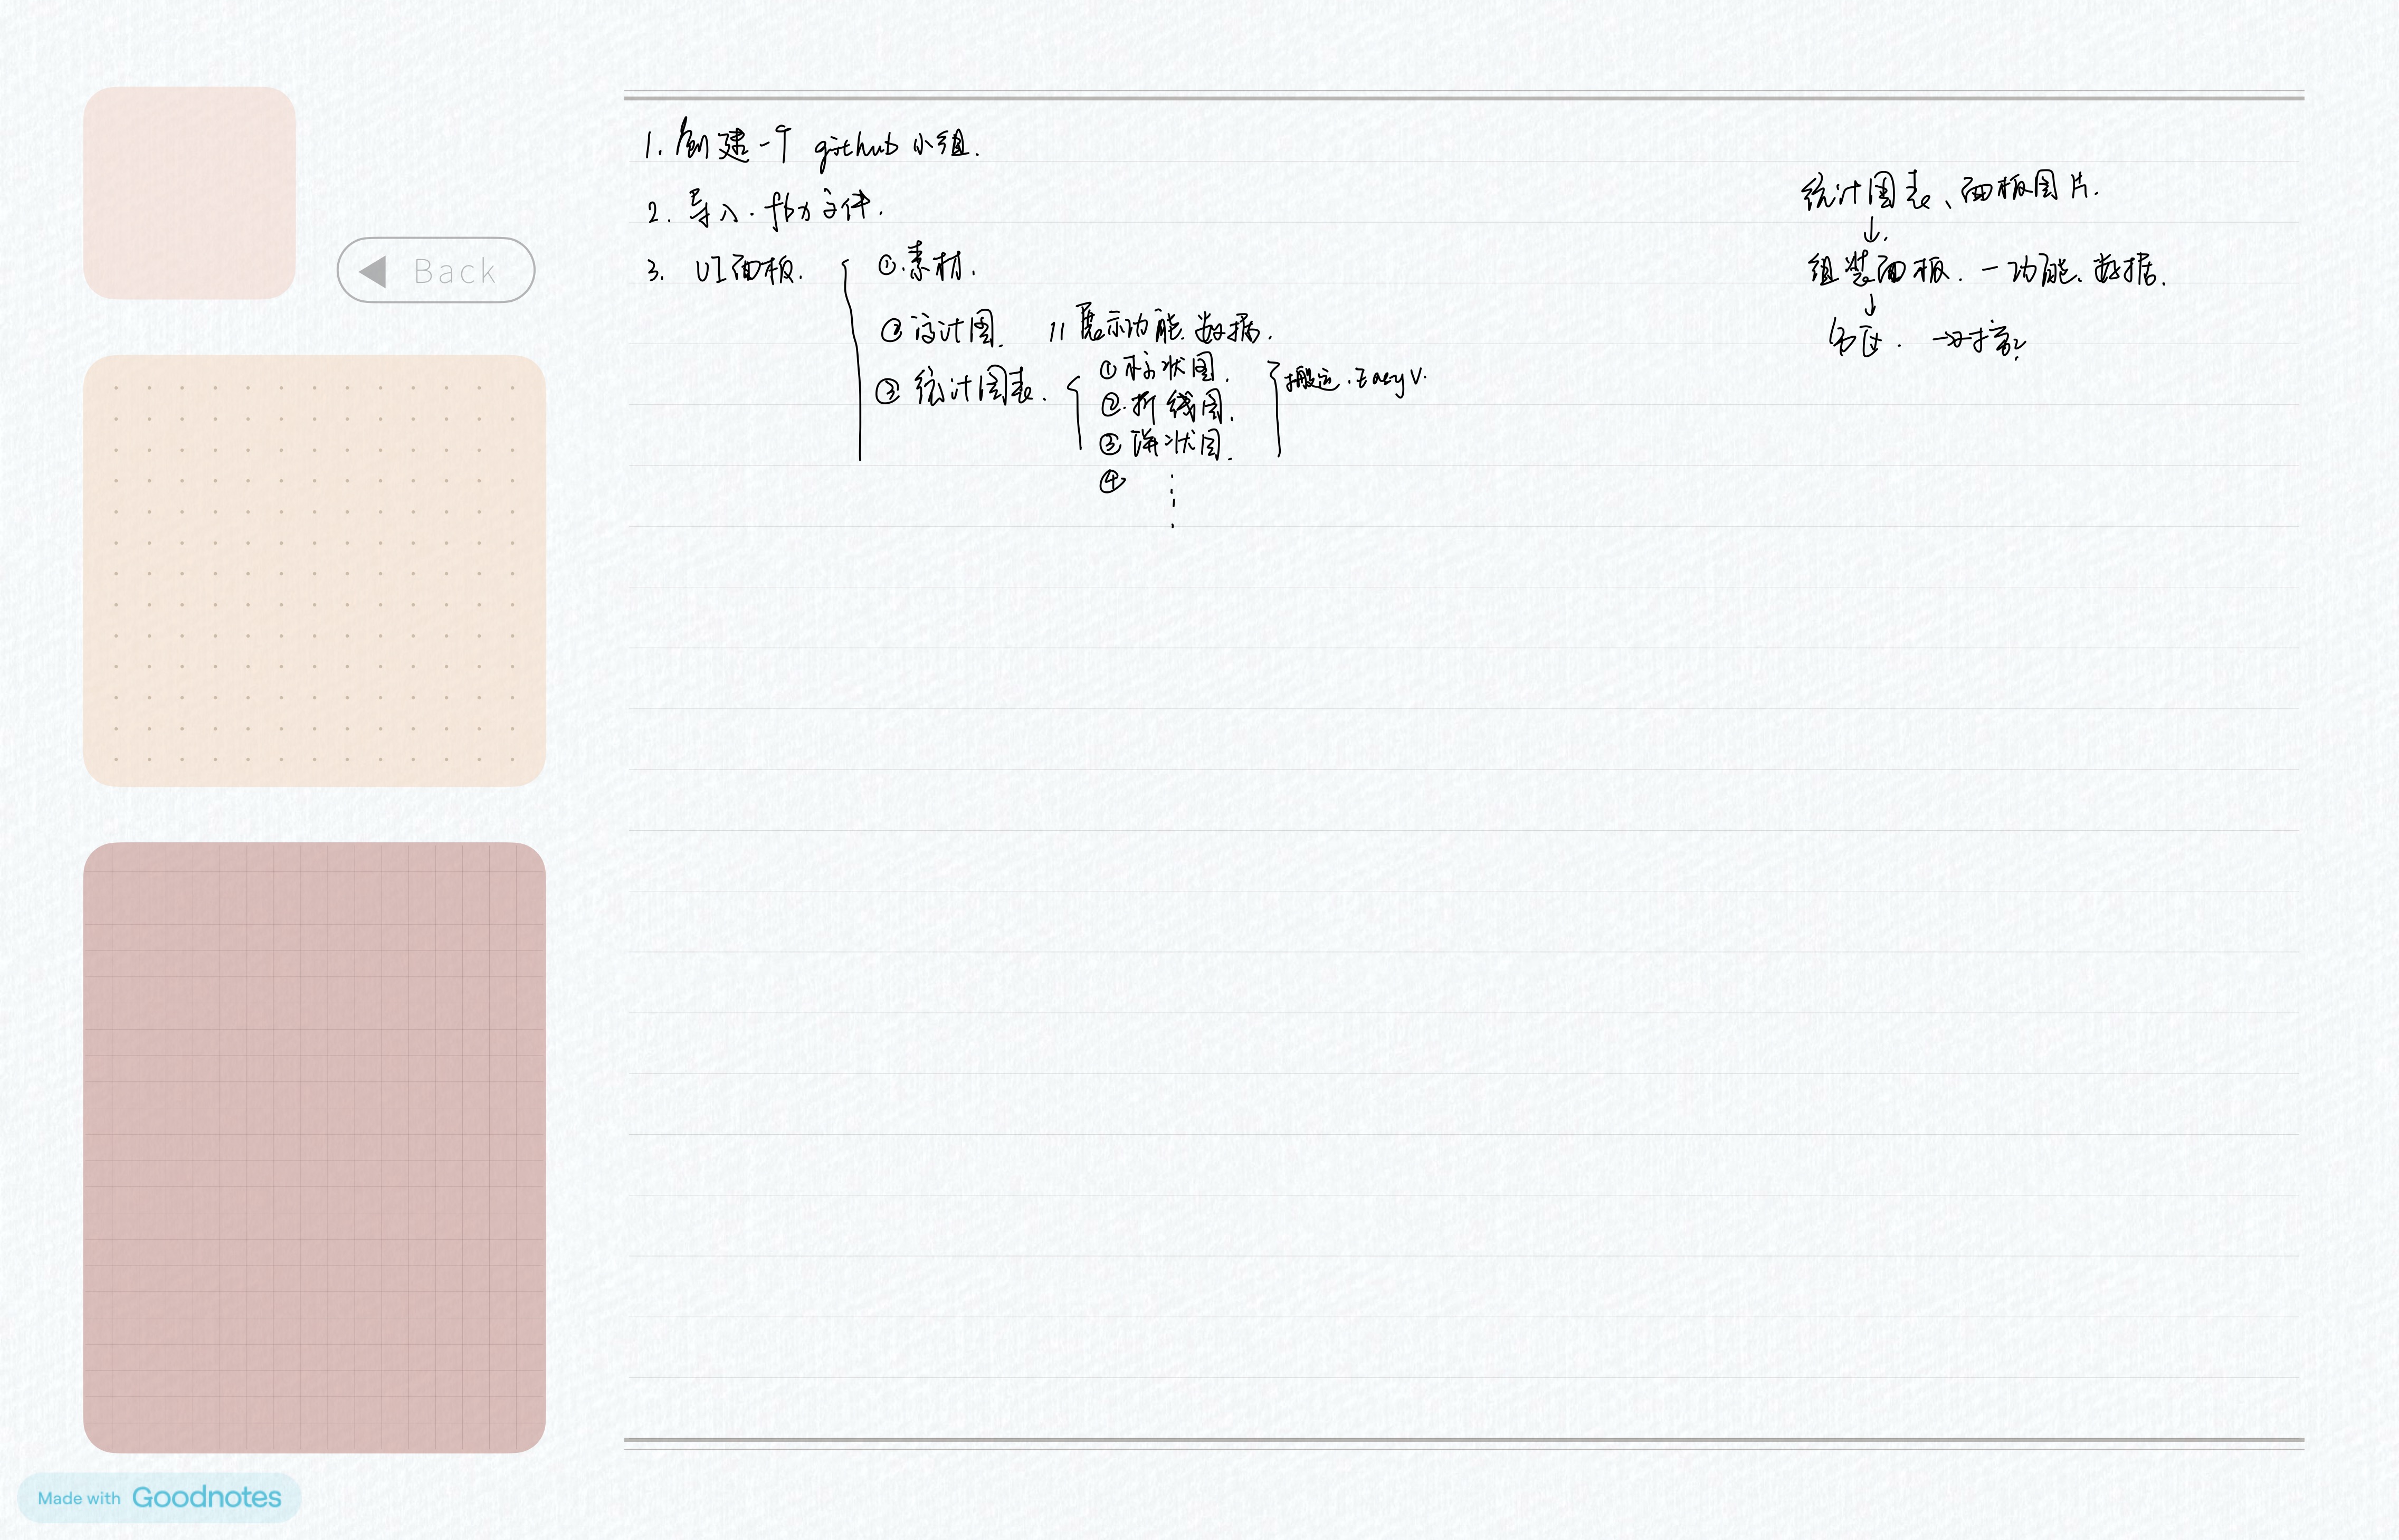 1. 创建一个 github 小组.
2. 导入.fbx文件.
3. UI面板.
①.素材.
② 设计图. // 展示功能、数据.
③ 统计图表.
①柱状图.
②.折线图.
③饼状图.
④
搬运.EasyV.
统计图表、面板图片.
↓.
组装面板. — 功能、数据.
↓
Back
Made with Goodnotes